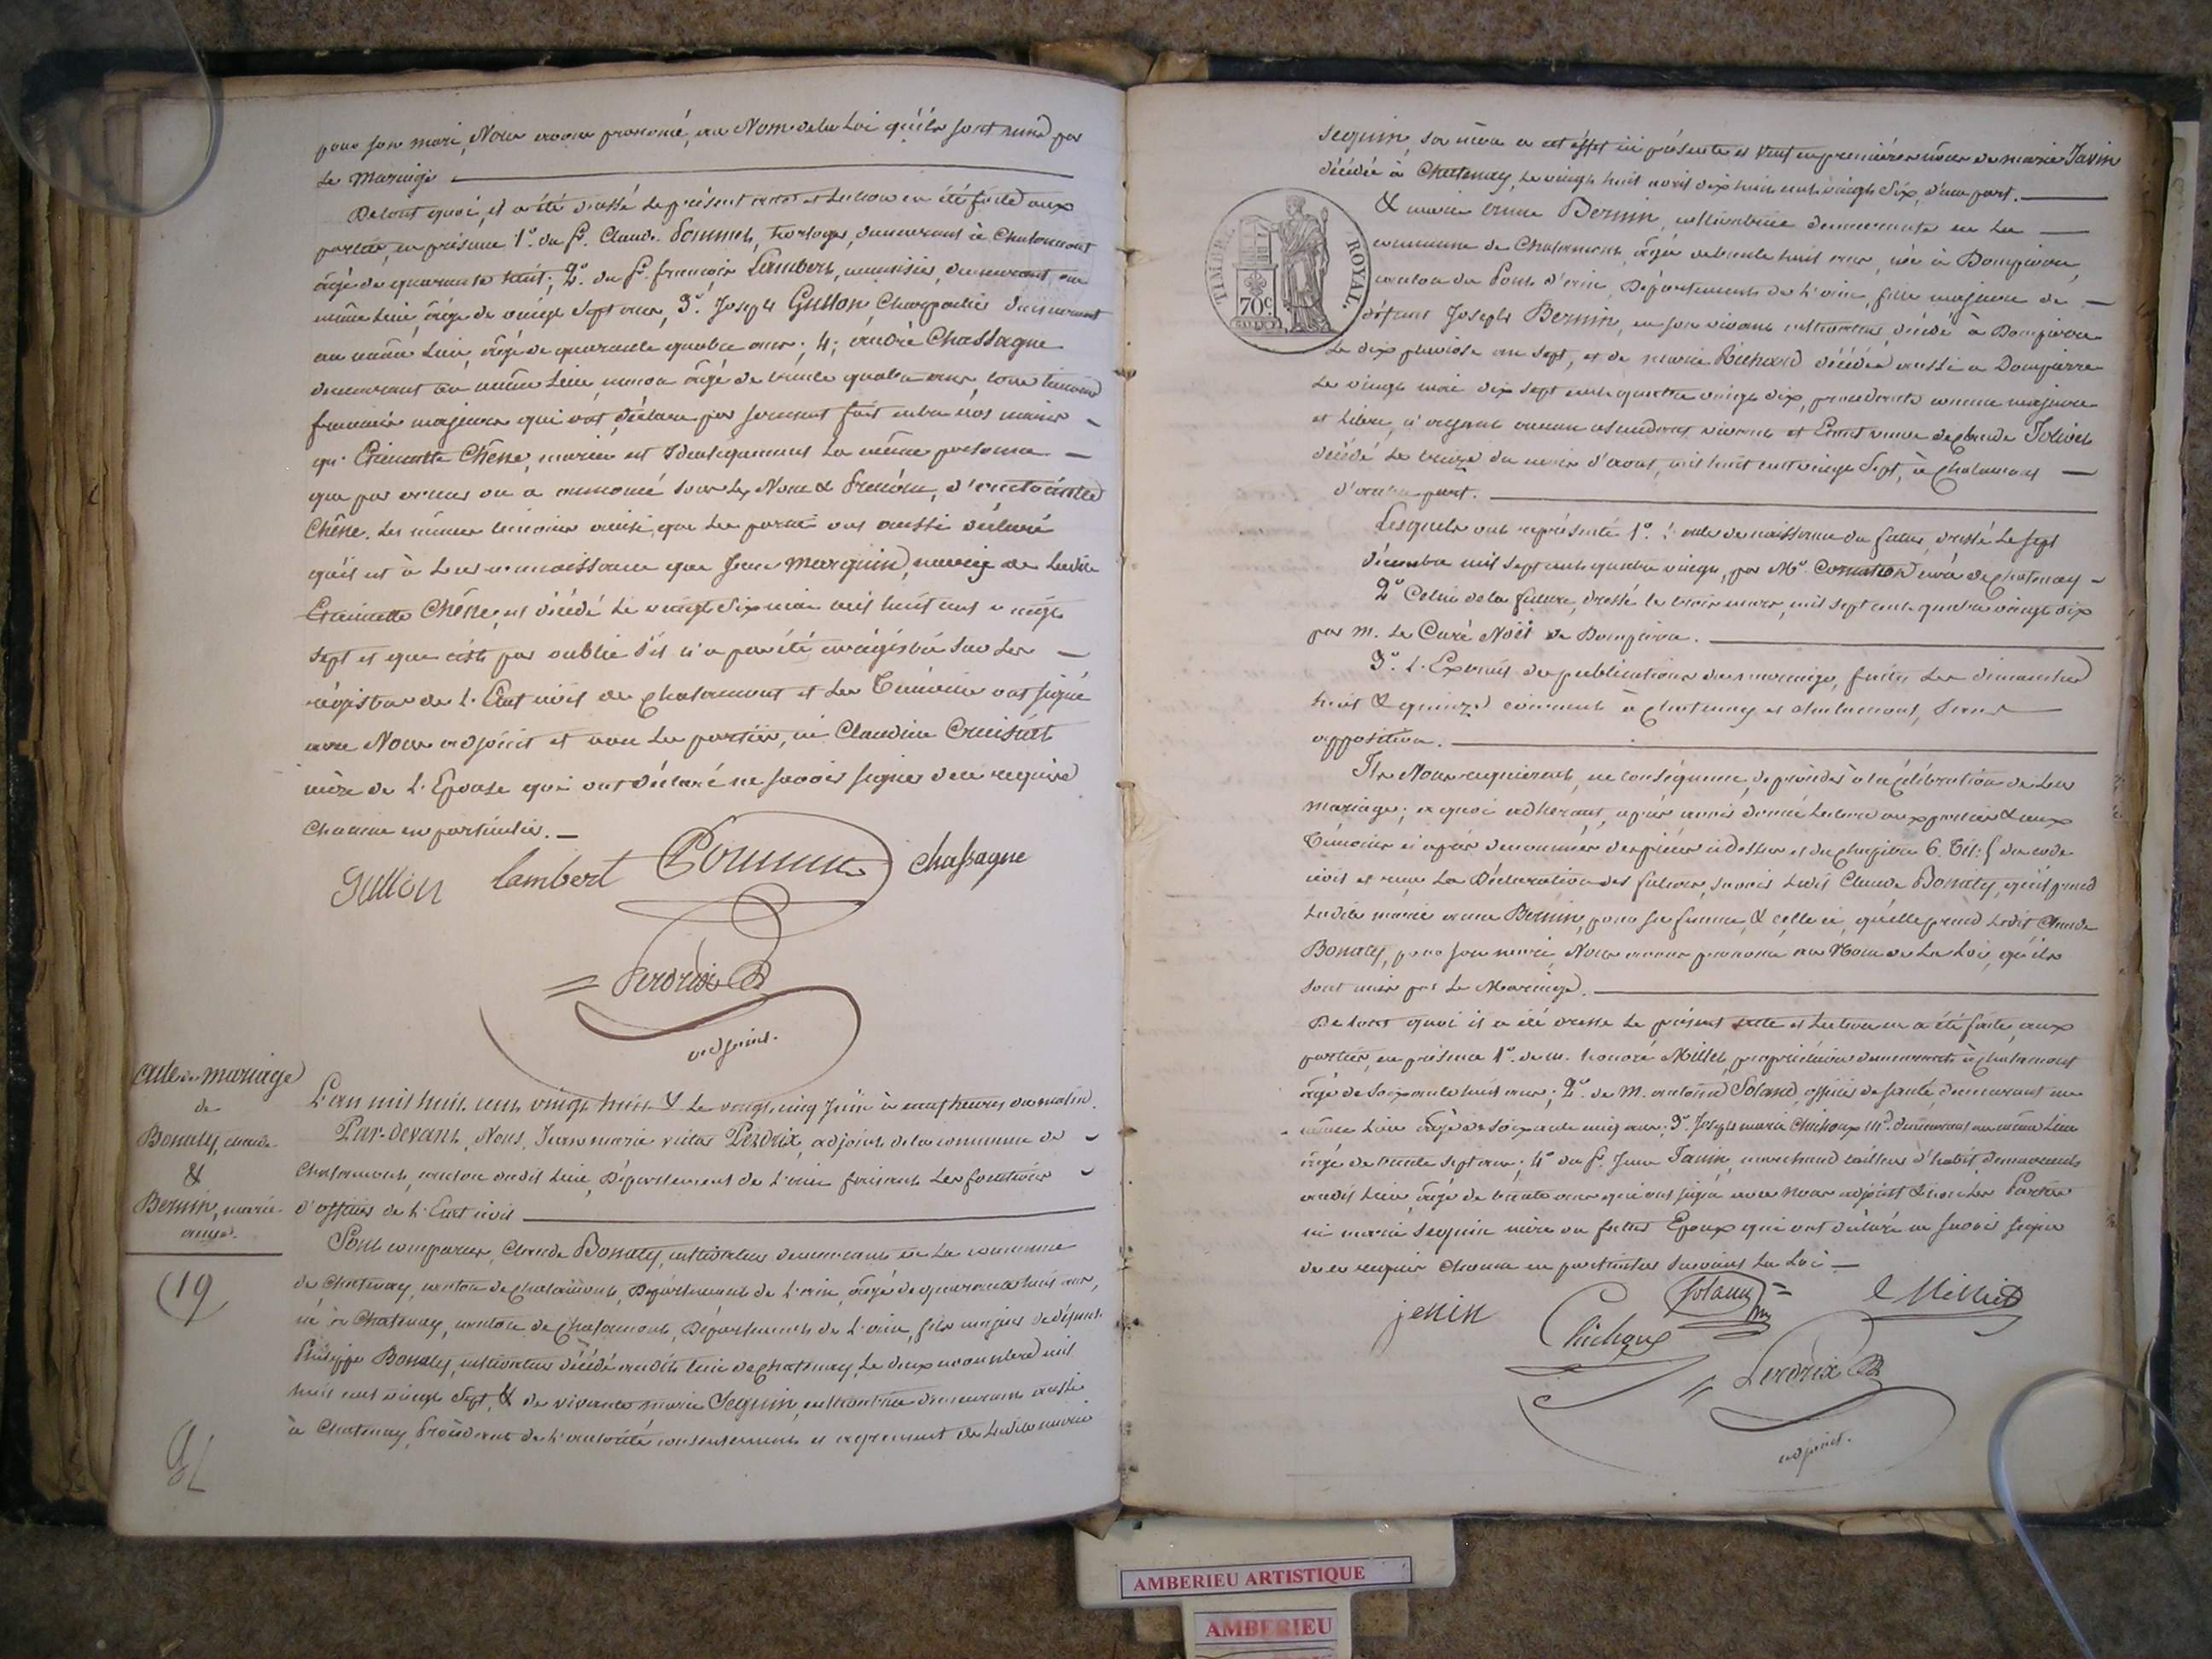 pour son mari, Nous avons prononcé, au Nom de la Loi qu'ils sont unis par
le Mariage
De tout quoi, il a été dressé le présent acte et lecture en été faite aux
parties, en présence 1° du Sr. Claude Pommet, horloger, demeurant à Chalamont
âgé de quarante huit; 2° du Sr. françois Lambert, menuisier, demeurant au
même lieu, âgé de vingt sept ans, 3° Joseph Guillon, Charpentier demeurant
au même lieu, âgé de quarante quatre ans; 4; andré Chassagne
demeurant au même lieu, maçon âgé de trente quatre ans, tous témoins
français majeurs qui ont déclaré par serment fait entre nos mains
que Etiennette Chêne, mariée est identiquement la même personne
que par erreur on a nommé sous les Nom & Prénom, d'antoinette
Chêne. Les mêmes témoins ainsi que les parties ont aussi déclaré
qu'il est à leur connaissance que Jean Marguin, mari de ladite
Etiennette Chêne, est décédé le vingt six mai mil huit cent vingt
sept et que c'est par oublie s'il n'a pas été enrégistré sur les
régistres de l'Etat civil de Chalamont et les Témoins ont signé
avec Nous adjoint et non les parties, ni Claudine Cruisiat
mère de l'Epouse qui ont déclaré ne savoir signer de ce requis
Chacune en particulier.
Guillon Lambert Pommet Chassagne
Perdrix
adjoint.
acte de mariage
de
Bonaly, claude
&
Bernin, marie
anne.
(19
L'an mil huit cent vingt huit & le vingt cinq Juin à neuf heures du matin.
Par-devant, Nous, Jean marie victor Perdrix, adjoint de la commune de
Chalamont, canton dudit lieu, Département de l'ain faisant les fonctions
d'officier de l'Etat civil
Sont comparus, Claude Bonaly, cultivateur demeurant en la commune
de Chatenay, canton de Chalamont, Département de l'ain, âgé de quarante huit ans,
né à Chatenay, canton de Chalamont, Département de l'ain, fils majeur de défunt
Philippe Bonaly, cultivateur décédé audit lieu de Chatenay, le deux novembre mil
huit cent vingt sept, & de vivante marie Seguin, cultivatrice demeurant aussi
à Chatenay, Procédant de l'autorité consentement et agrément de ladite marie
seguin, sa mère à cet effet ici présente et Veuf en premières nôces de marie Javin
décédée à Chatenay, le vingt huit avril dix huit cent vingt six, d'une part.
& marie anne Bernin, cultivatrice demeurante en la
commune de Chalamont, âgée de trente huit ans, née à Dompierre,
canton de Pont d'ain, Département de l'ain, fille majeure de
défunt Joseph Bernin, en son vivant cultivateur, décédé à Dompierre
le dix pluviose an sept, et de marie Richard décédée aussi à Dompierre
le vingt mai dix sept cent quatre vingt dix, procédante comme majeure
et libre, n'ayant aucun ascendant vivant et Etant veuve de claude Jolivet
décédé le treize du mois d'aout, mil huit cent vingt sept, à Chalamont
d'autre part.
TIMBRE ROYAL.
70c
Lesquels ont représenté 1°. l'acte de naissance du futur, dressé le sept
décembre mil sept cent quatre vingt, par Mr. Cornaton curé de Chatenay
2° Celui de la future, dressé le trois mars, mil sept cent quatre vingt dix
par m. le Curé Noël de Dompierre.
3° L'Extrait des publications du mariage, faites les dimanches
huit & quinze courant à Chatenay et Chalamont, sans
opposition.
Ils Nous requièrent, en conséquence, de procéder à la célébration de leur
mariage; à quoi adherant, après avoir donné lecture aux parties & aux
Témoins ci après dénommés des pièces ci dessus et du chapitre 6. Tit: 5 du code
civil et reçu la Déclaration des futurs, savoir ledit Claude Bonaly, qu'il prend
ladite marie anne Bernin, pour sa femme, & celle ci, qu'elle prend ledit Claude
Bonaly, pour son mari, Nous avons prononcé au Nom de La Loi, qu'ils
sont unis par le Mariage.
De tout quoi il a été dressé le présent acte et lecture en a été faite aux
parties, en présence 1° de m. honoré Millet, propriétaire demeurant à Chalamont
âgé de soixante huit ans; 2° de M. antoine Soland, officier de santé, demeurant au
même lieu âgé de soixante cinq ans; 3° Joseph marie Chichoux md. demeurant au même lieu
âgé de trente sept ans; 4° du Sr. Jean Janin, marchand tailleur d'habit, demeurant
audit lieu, âgé de trente ans qui ont signé avec nous adjoint & non les Parties
ni marie Seguin mère du futur Epoux qui ont déclaré ne savoir signer
de ce requis Chacun en particulier suivant La Loi
jenin Chichoux Soland Millet
Perdrix
adjoint.
AMBERIEU ARTISTIQUE
AMBERIEU